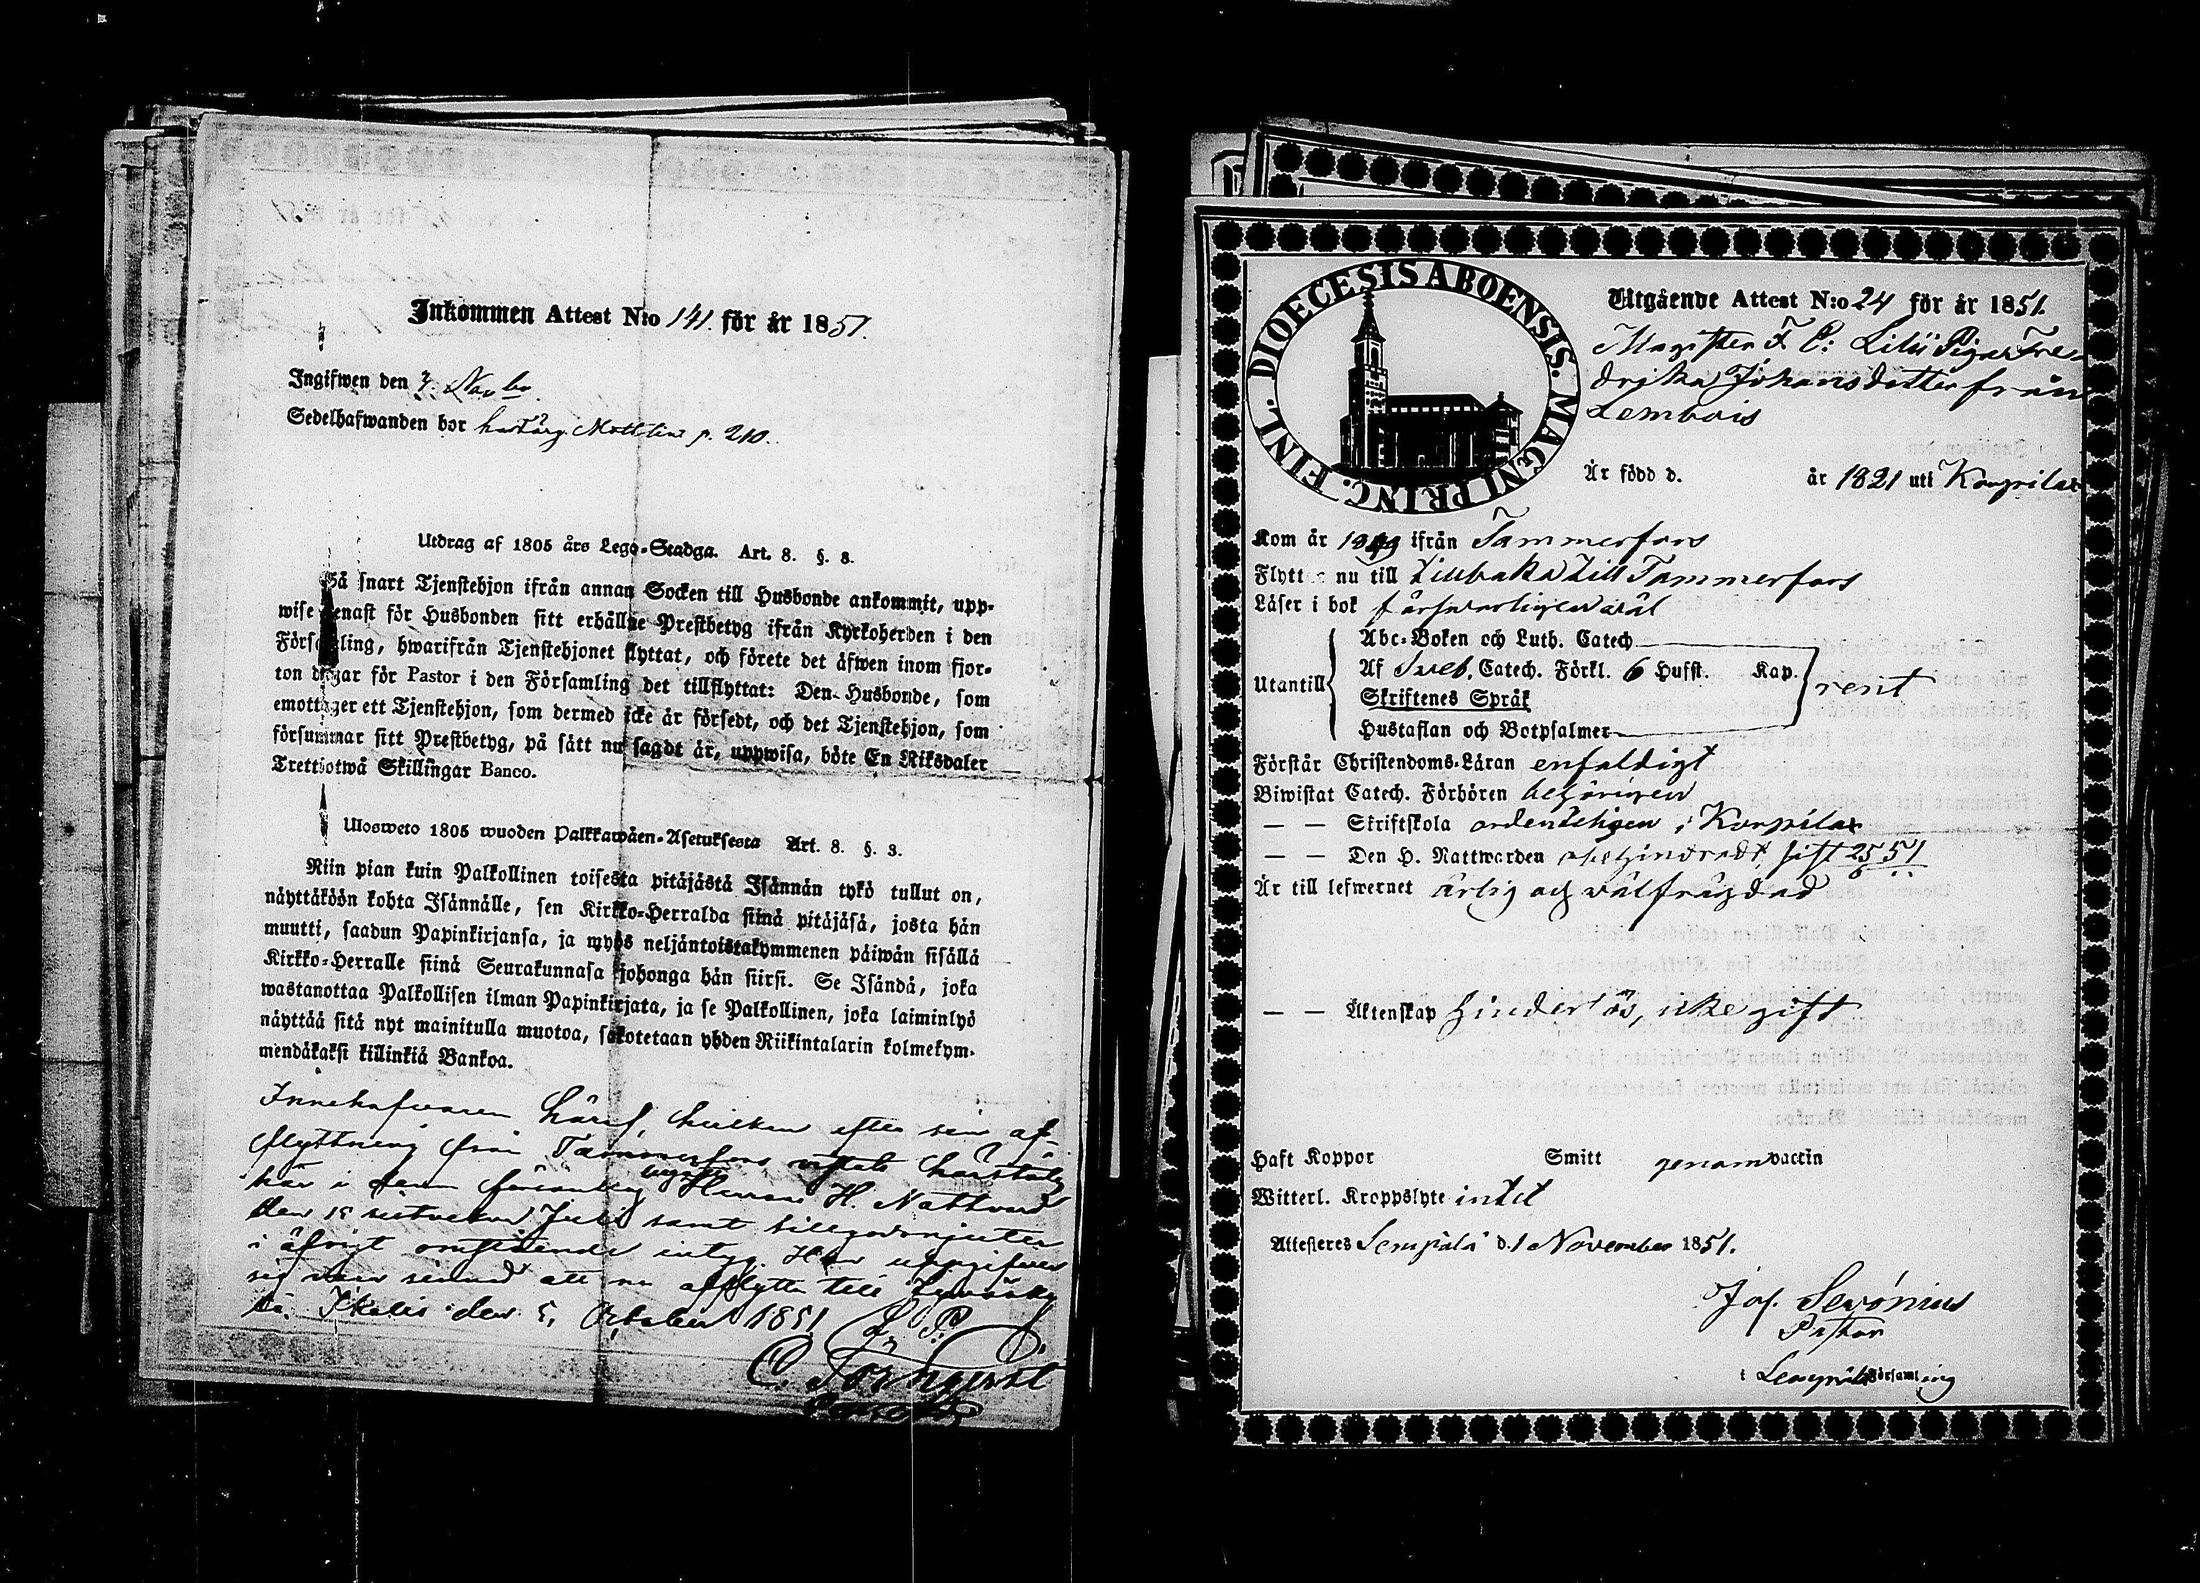 Inkommen Attest N:o 141. för år 1851.
Ingifwen den 7 Novbr.
Sedelhafwanden bor p. 210.
Utdrag af 1805 års Lego-Stadga. Art. 8. §. 3.
Så snart Tjenstehjon ifrån annan Socken till Husbonde ankommit, upp-
wise genast för Husbonden sitt erhållne Prestbetyg ifrån Kyrkoherden i den
Församling, hwarifrån Tjenstehjonet flyttat, och förete det äfwen inom fjor-
ton dagar för Pastor i den Församling det tillflyttat: Den Husbonde, som
emottager ett Tjenstehjon, som dermed icke är försedt, och det Tjenstehjon, som
försummar sitt Prestbetyg, på sätt nu sagdt är, uppwisa, böte En Riksdaler
Trettiotwå Skillingar Banco.
Ulosweto 1805 wuoden Palkkawäen-Asetuksesta Art. 8. §. 3.
Niin pian kuin Palkollinen toisesta pitäjästä Isännän tykö tullut on,
näyttäköön kohta Isännälle, sen Kirkko-Herralda siinä pitäjäsä, josta hän
muutti, saadun Papinkirjansa, ja myös neljäntoistakymmenen päiwän sisällä
Kirkko-Herralle siinä Seurakunnasa johonga hän siirsi. Se Isändä, joka
wastanottaa Palkollisen ilman Papinkirjata, ja se Palkollinen, joka laiminlyö
näyttää sitä nyt mainitulla muotoa, sakotetaan yhden Riikintalarin kolmekym-
mendäkaksi killinkiä Bankoa.
Innehafvaren häraf, hvilken efter sin af-
flyttning från Tammerfors
här i denna församling begått Herrans H. Nattvard
den 15 sistvekne Juli samt tillgodonjuter
i öfrigt omstående intyg. Har uppgifvit
sig vara sinnad att nu afflytta till
Ikalis den 5. October 1851
C. Törnqvist
DIOECESIS ABOENSIS. MAGNI PRINC. FINL.
Utgående Attest N:o 24 för år 1851.
Magister F. E: Lilii Pigan Fre
drika Johansdotter från
Lembois
Är född d. år 1821 uti Korpilax
Kom år 1849 ifrån Tammerfors
Flyttar nu till tillbaka till Tammerfors
Läser i bok försvarligen väl
Utantill
Abc-Boken och Luth. Catech
Af Sveb. Catech. Förkl. 6 Hufst. Kap.
Skriftenes Språk
Hustaflan och Botpsalmer
rent
Förstår Christendoms-Läran enfaldigt
Biwistat Catech. Förhören behörigen
— — Skriftskola ordentligen i Korpilax
— — Den H. Nattwarden obehindradt, sist 25/6 51
Är till lefwernet ärlig och välfrägdad
— — Äktenskap hinderlös, icke gift
Haft Koppor Smitt genom vaccin
Witterl. Kroppslyte intet
Attesteres Lempälä d. 1 November 1851.
Jos. Serónius
Pastor
i Lempälä Församling